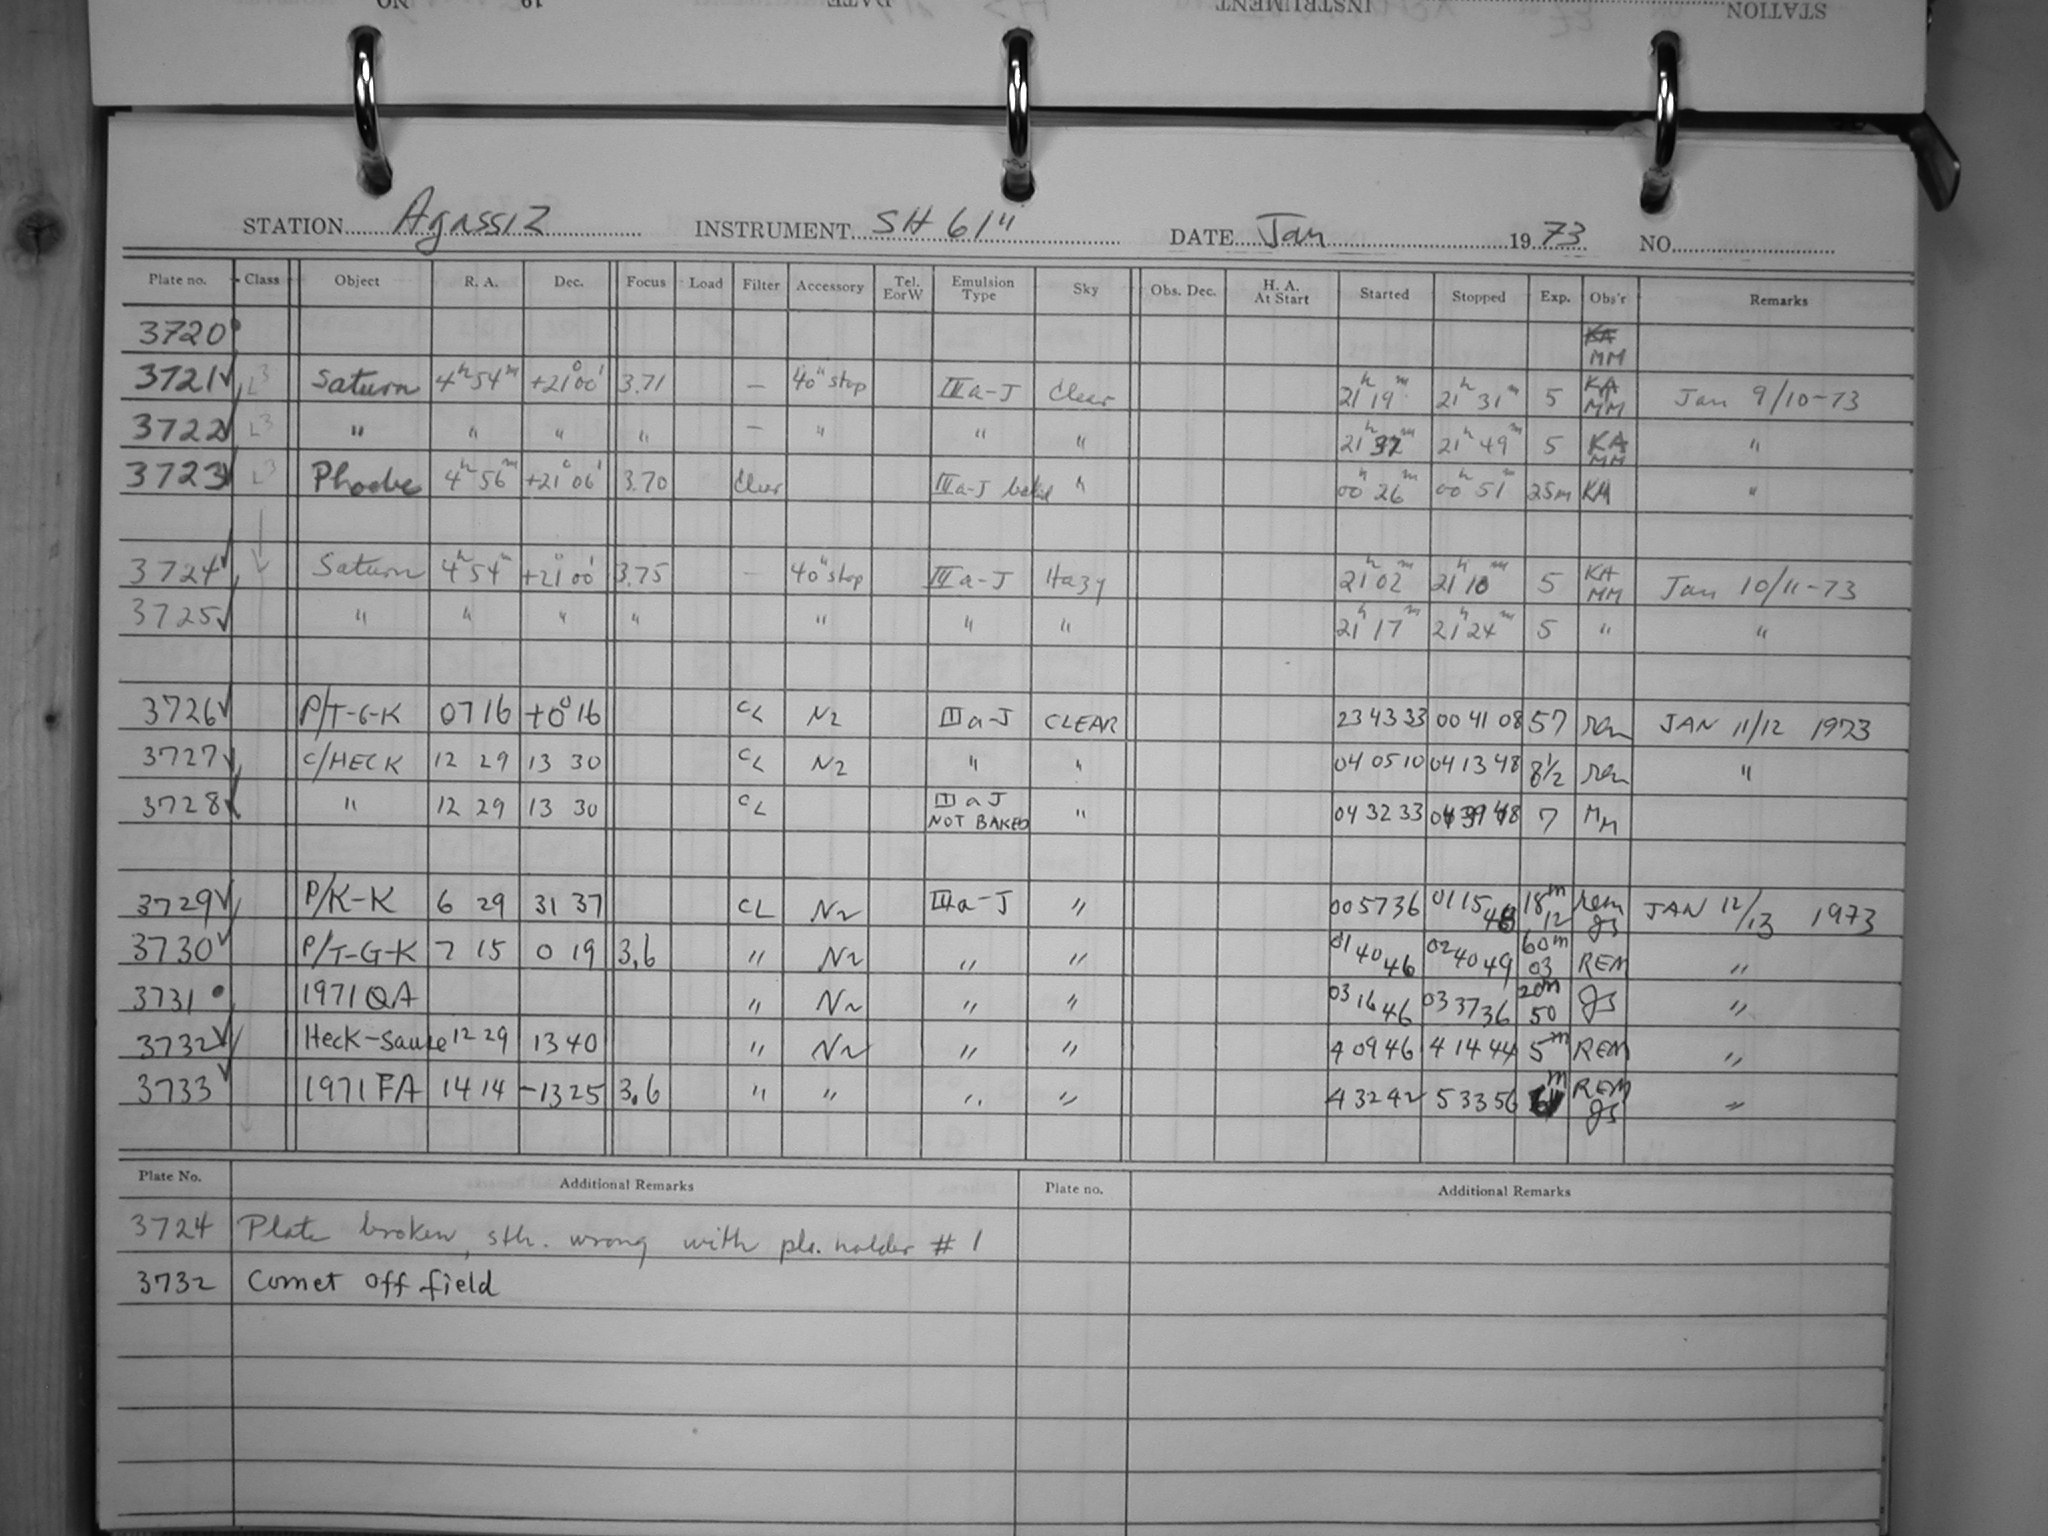 STATION INSTRUMENT DATE 19 NO
STATION Agassiz INSTRUMENT SH 61" DATE Jan 1973 NO.
Plate no. Class Object R. A. Dec. Focus Load Filter Accessory Tel. EorW Emulsion Type Sky Obs. Dec. H. A. At Start Started Stopped Exp. Obs'r Remarks
3720 KA MM
3721 ✓ L3 Saturn 4h 54m +21° 00' 3.71 — 40" stop IIIa-J Clear 21h 19m 21h 31m 5 KA MM Jan 9/10-73
3722 ✓ L3 " " " " — " " " 21h 32m 21h 49m 5 KA MM "
3723 ✓ L3 Phoebe 4h 56m +21° 06' 3.70 Clear IIIa-J baked " 00h 26m 00h 51m 25m KA "
3724 ✓ Saturn 4h 54m +21° 00' 3.75 - 40" stop IIIa-J Hazy 21h 02m 21h 10m 5 KA MM Jan 10/11-73
3725 ✓ " " " " " " " 21h 17m 21h 24m 5 " "
3726 ✓ P/T-G-K 07 16 +0° 16 CL N2 IIIa-J CLEAR 23 43 33 00 41 08 57 rem JAN 11/12 1973
3727 ✓ C/HECK 12 29 13 30 CL N2 " " 04 05 10 04 13 48 8 1/2 rem "
3728 ✓ " 12 29 13 30 CL IIIaJ NOT BAKED " 04 32 33 04 39 48 7 MM
3729 ✓ P/K-K 6 29 31 37 CL N2 IIIa-J " 00 57 36 01 15 48 18m 12 rem JS JAN 12/13 1973
3730 ✓ P/T-G-K 7 15 0 19 3.6 " N2 " " 01 40 46 02 40 49 60m 03 REM "
3731 • 1971 QA " N2 " " 03 16 46 03 37 36 20m 50 JS "
3732 ✓ Heck-Sause 12 29 13 40 " N2 " " 4 09 46 4 14 44 5m REM "
3733 ✓ 1971 FA 14 14 -13 25 3.6 " " " " 4 32 42 5 33 56 m REM JS "
Plate No. Additional Remarks Plate no. Additional Remarks
3724 Plate broken, sth. wrong with pla. holder # 1
3732 Comet off field